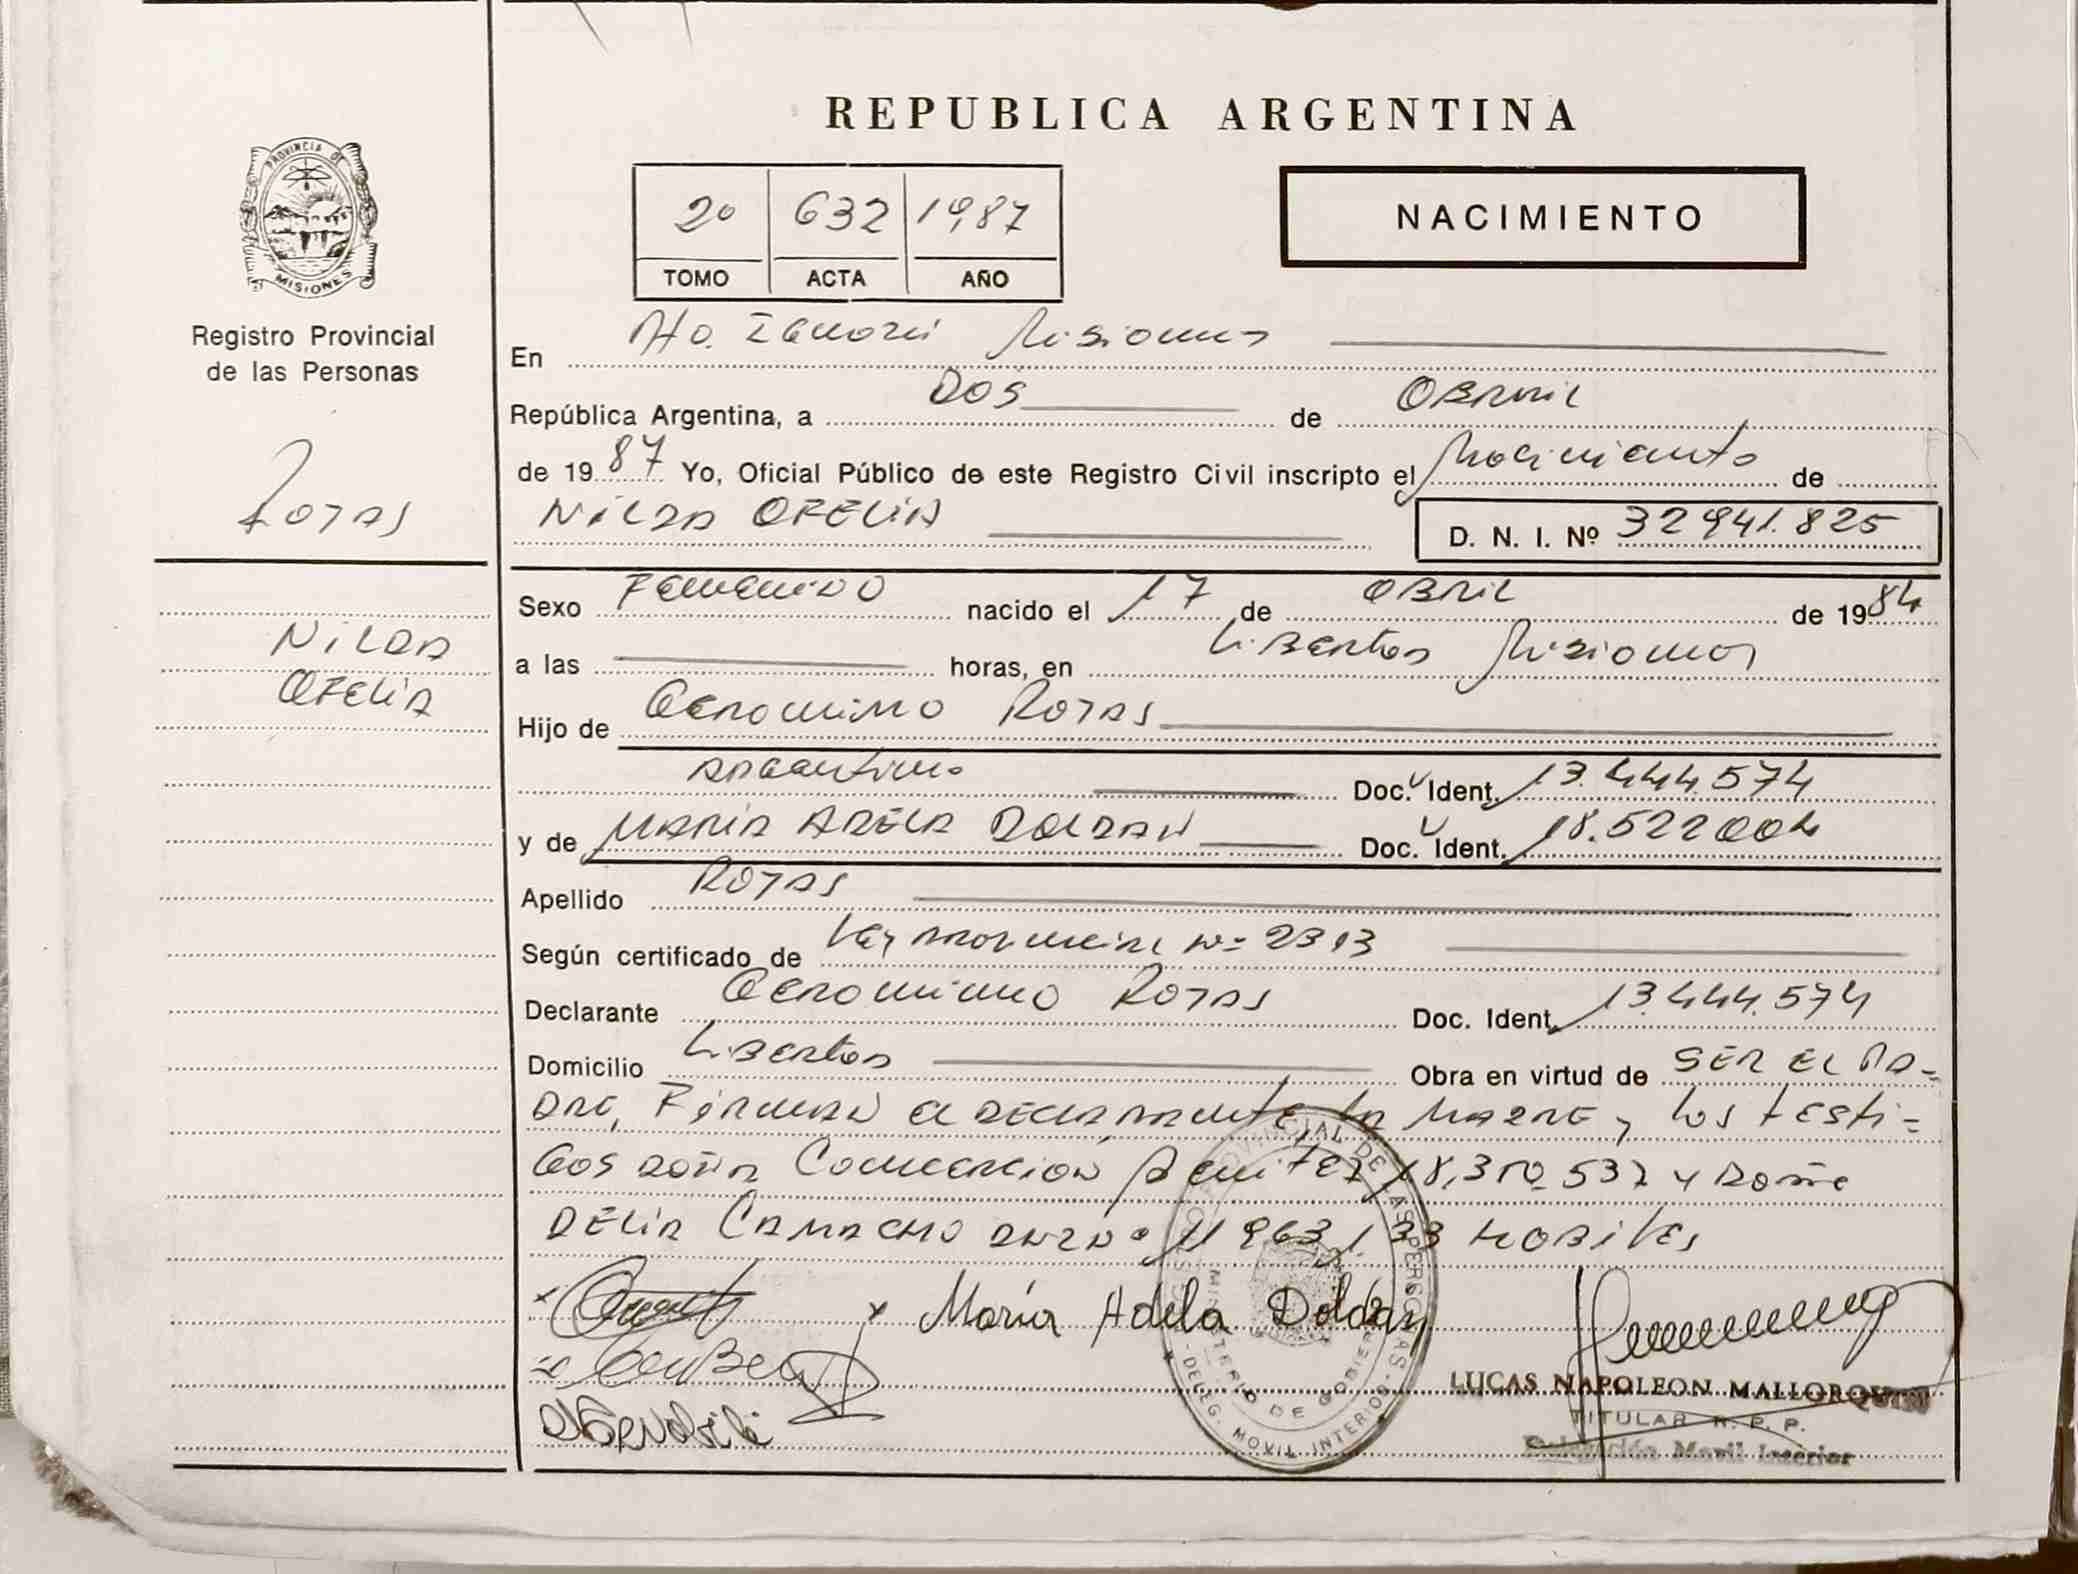 REPUBLICA ARGENTINA
PROVINCIA DE
MISIONES
Registro Provincial
de las Personas
2º 632 1987
TOMO ACTA AÑO
NACIMIENTO
En Misiones
República Argentina, a DOS de ABRIL
de 1987 Yo, Oficial Público de este Registro Civil inscripto el Nacimiento de
NILDA OFELIA D. N. I. Nº 32941.825
ROJAS
NILDA
OFELIA
Sexo FEMENINO nacido el 17 de ABRIL de 1984
a las horas, en Libertad Misiones
Hijo de GERONIMO ROJAS
ARGENTINO Doc. Ident. 13.444.574
y de MARIA ADELA DOLDAN Doc. Ident. 18.522004
Apellido ROJAS
Según certificado de Ley Nº 2313
Declarante GERONIMO ROJAS Doc. Ident. 13.444.574
Domicilio Libertad Obra en virtud de SER EL PA-
DRE, FIRMAN EL DECLARANTE, LA MADRE y LOS TESTI=
GOS DOÑA 18,310.537 y DOÑA
DELIA CAMACHO DNI Nº 11963,133 HABILES
María Adela Doldán
REGISTRO PROVINCIAL DE LAS PERSONAS
MINISTERIO DE GOBIERNO
- DELEG. MOVIL INTERIOR -
LUCAS NAPOLEON MALLORQUIN
TITULAR R. P. P.
Delegación Movil Interior